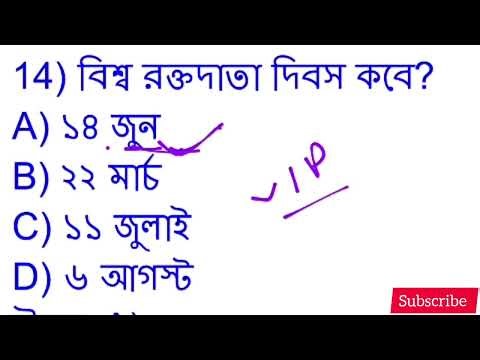 14) বিশ্ব রক্তদাতা দিবস কবে?
A) ১৪ জুন
B) ২২ মার্চ
VIP
C) ১১ জুলাই
D) ৬ আগস্ট
Subscribe